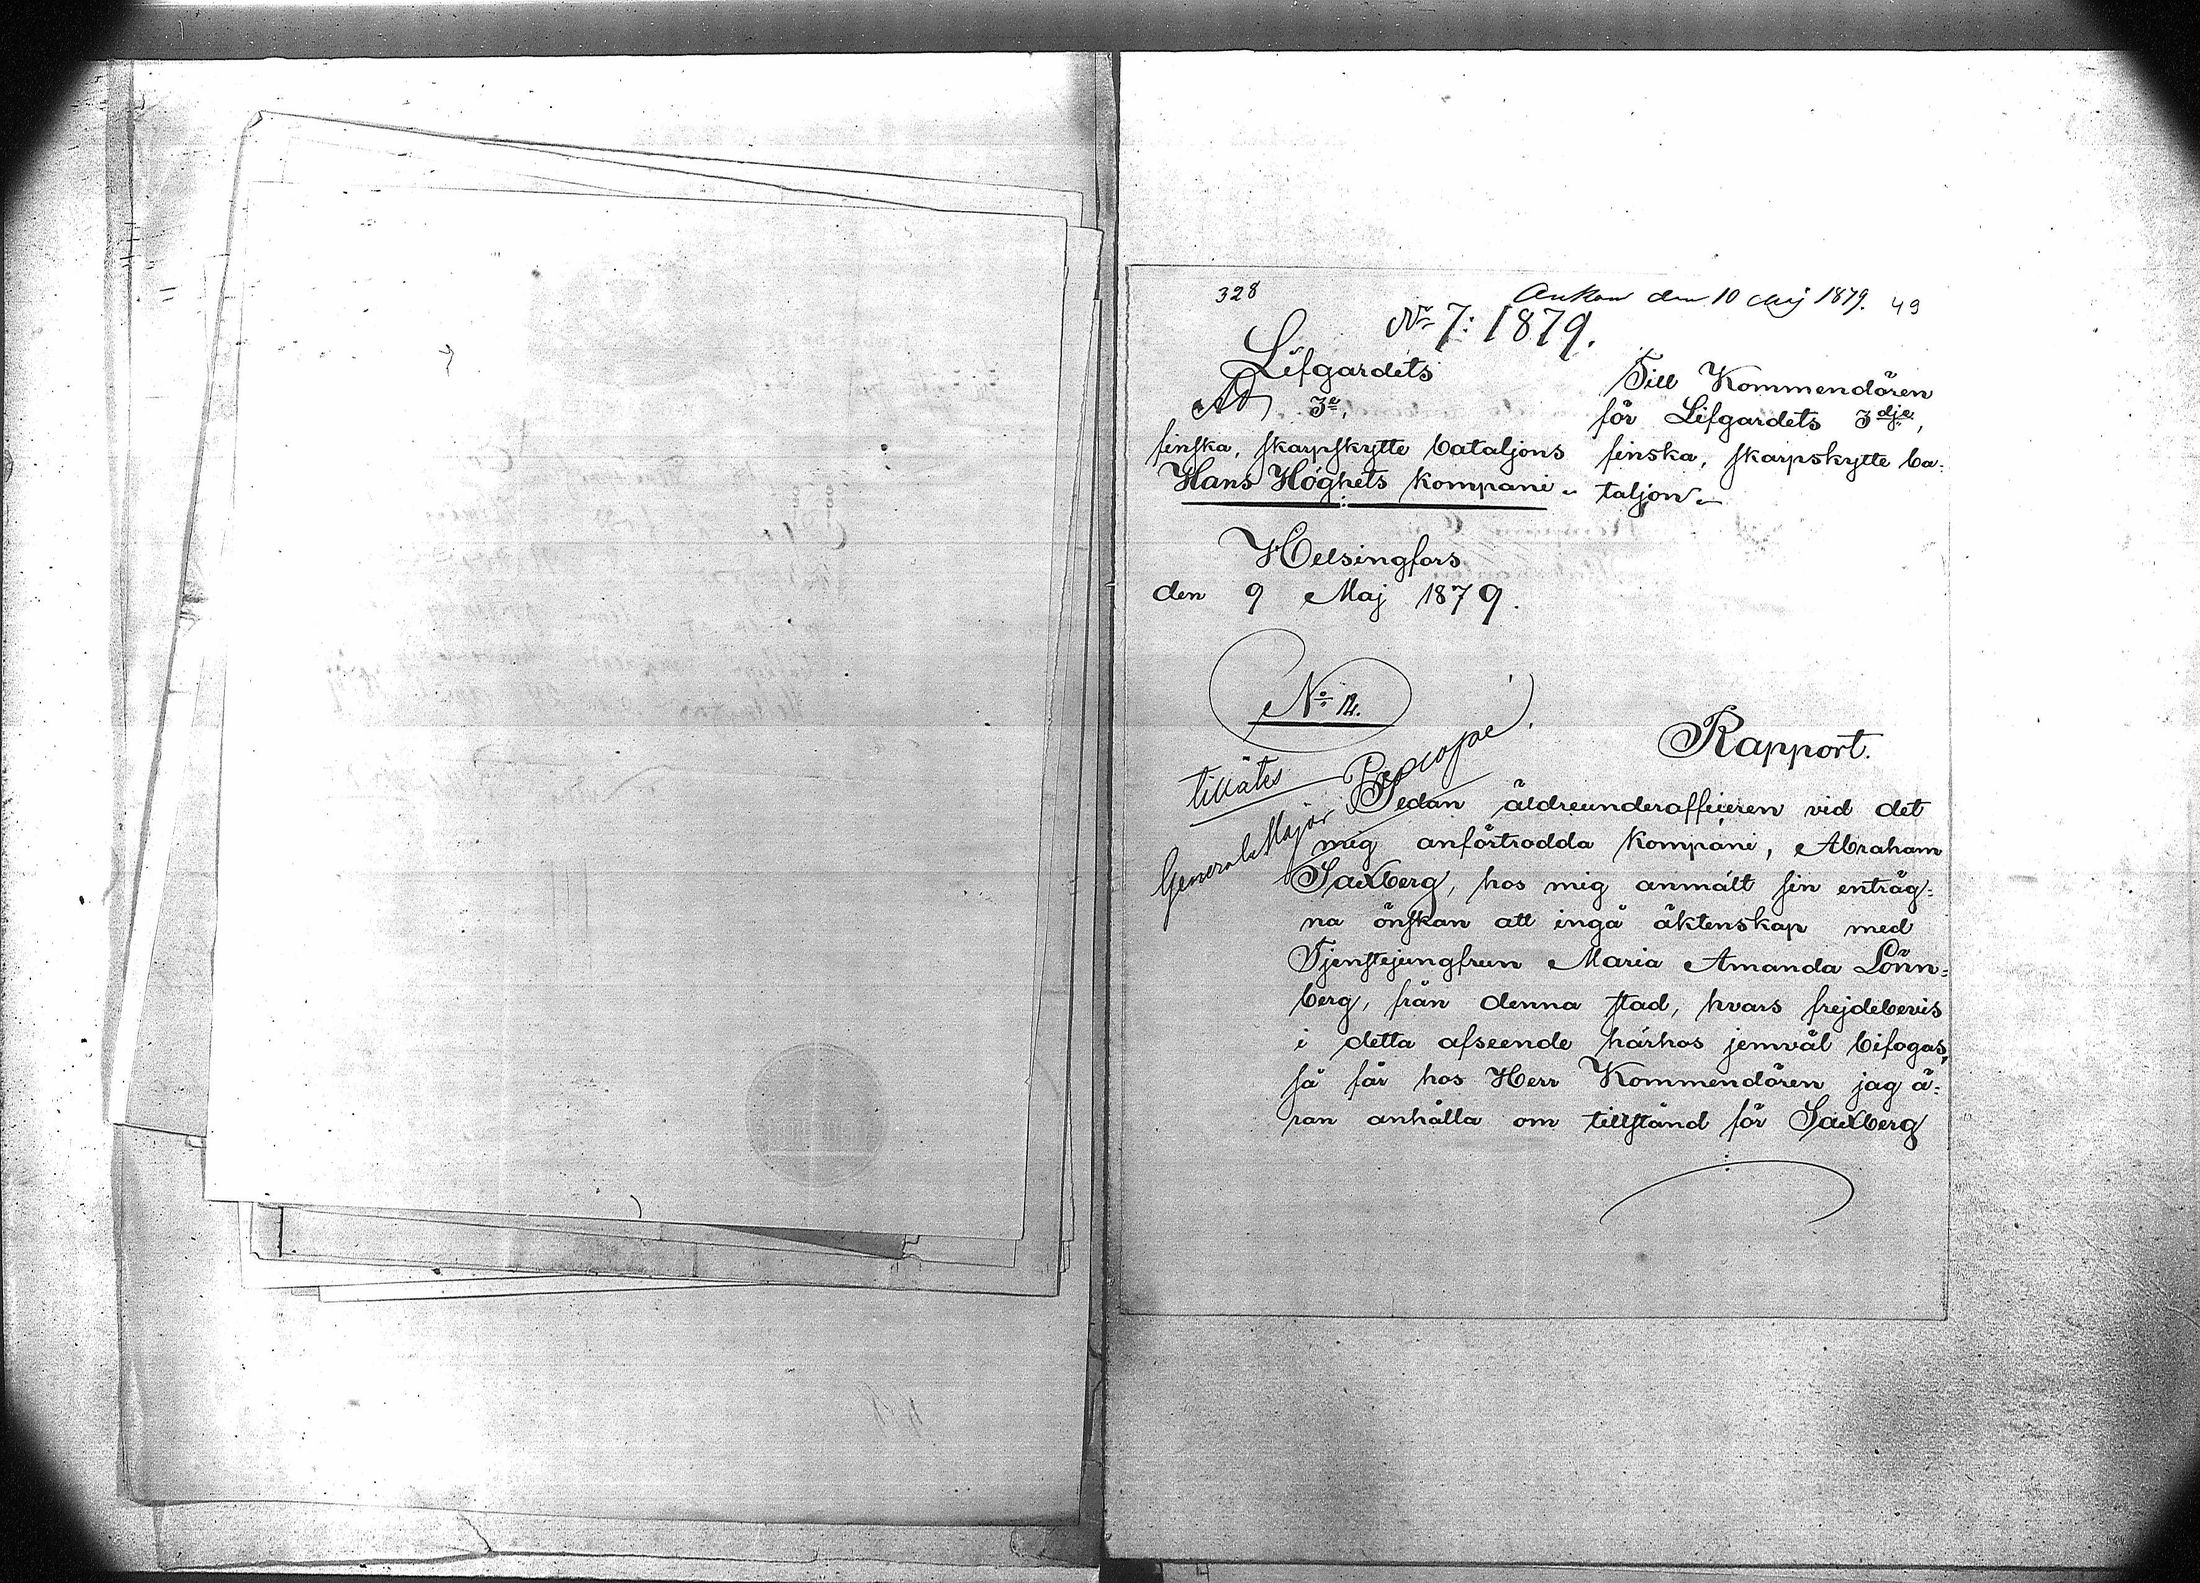 328
Ankom den 10 Maj 1879.
49
No 7: 1879.
Lifgardets
3e,
finska, skarpskytte bataljons
Hans Höghets Kompani
Till Kommendören
för Lifgardets 3dje,
finska, skarpskytte ba-
taljon
Helsingfors
den 9 Maj 1879.
No 12.
tillåtes
General Major Procopé
Rapport.
Sedan äldreunderofficeren vid det
mig anförtrodda Kompani, Abraham
Saxberg, hos mig anmält sin enträg-
na önskan att ingå äktenskap med
Tjenstejungfrun Maria Amanda Lönn-
berg, från denna stad, hvars frejdebevis
i detta afseende härhos jemväl bifogas,
så får hos Herr Kommendören jag ä-
ran anhålla om tillstånd för Saxberg